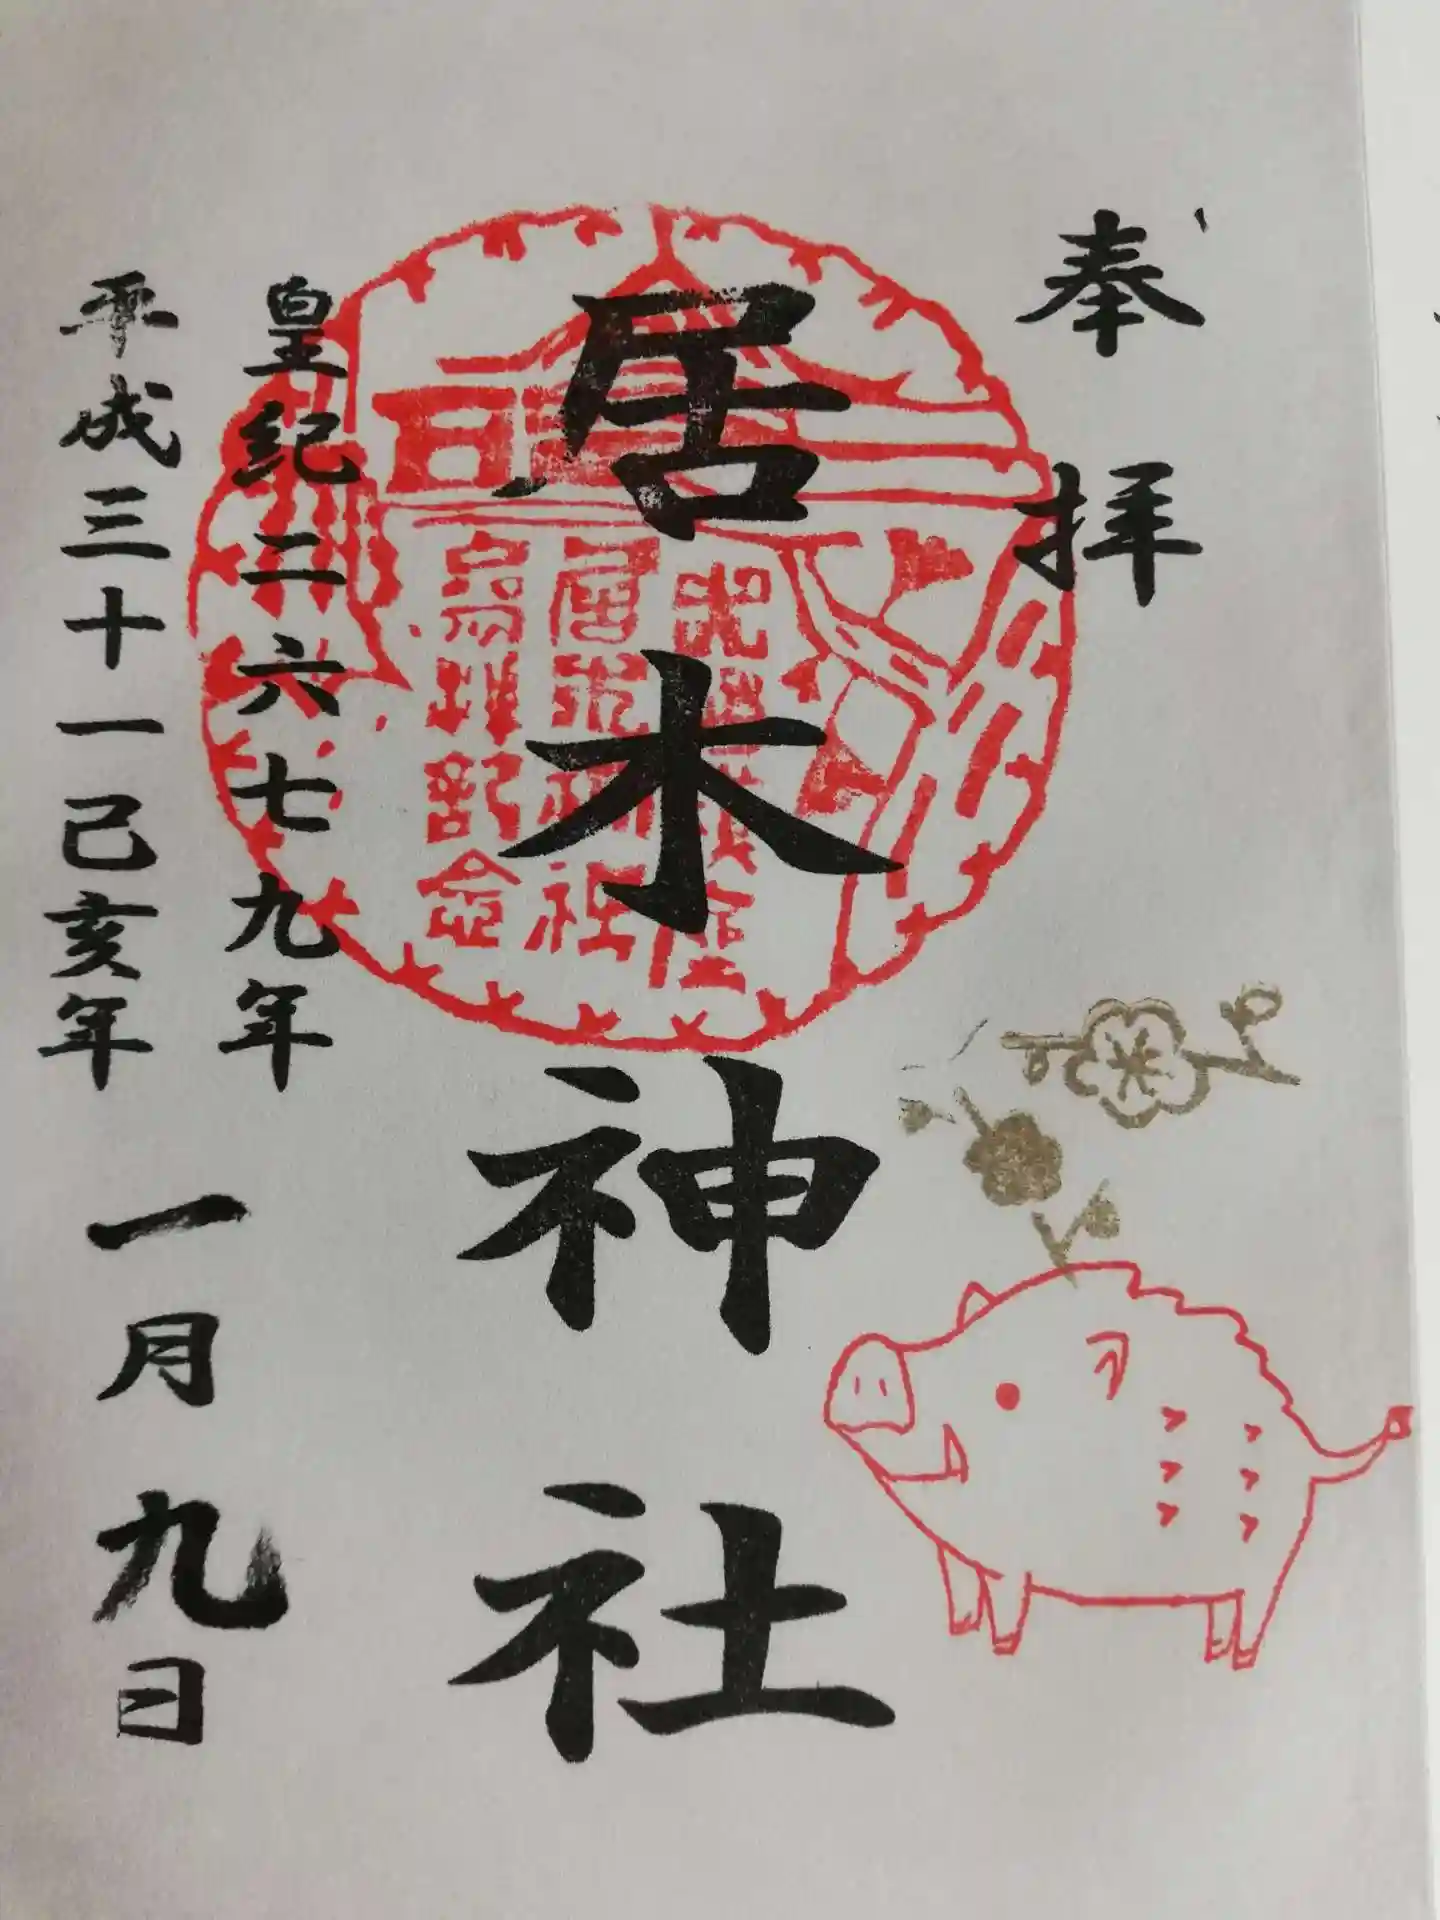 奉拝
居木神社
皇紀二六七九年
平成三十一己亥年 一月九日